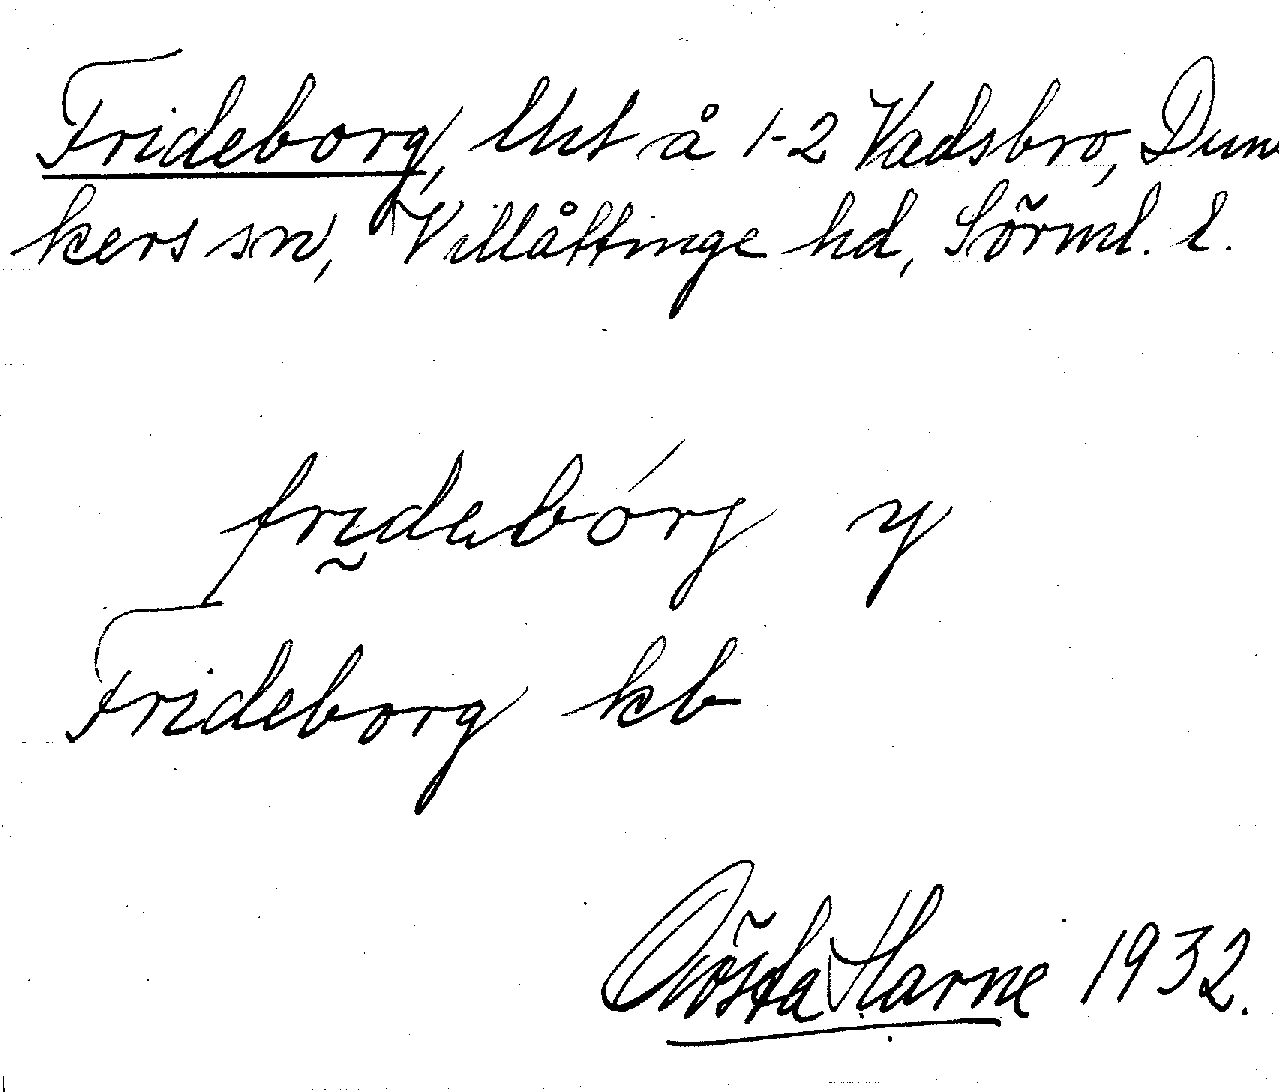 Frideborg, lht å 1-2 Vadsbro, Dun
kers sn, Villåttinge hd, Sörml. l.
fridebórj y
Frideborg kb
Gösta Harne 1932.